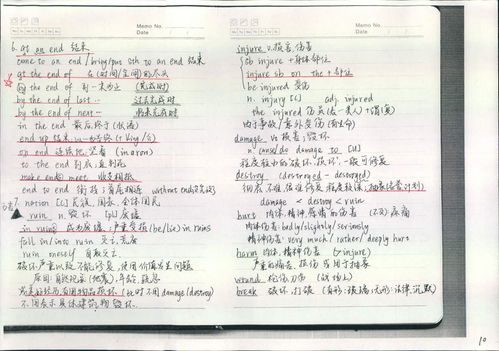 Memo No.
Date
6. at an end 结束
come to an end / bring/put sth to an end 结束
at the end of 在(时间/空间)的尽头
by the end of 到…末为止 (完成时)
by the end of last… 过去完成时
by the end of next… 将来完成时
in the end 最后终于
end up 结束,以…告终 (+Ving/介)
on end 连续地,竖着 (in a row)
to the end 到底,直到死
make ends meet 收支相抵
end to end 衔接,首尾相连 without end
7. nation [C] 民族,国家,全体国民
ruin n. 毁坏 [pl] 废墟
in ruins 成为废墟,严重受损 (be/lie) in ruins
fall in/into ruin
ruin oneself 自我
破坏严重以致不能修复,使用价值发生问题
原因:自然现象(地震),年龄,疏忽
(此时不同 damage/destroy)
不用表示具体建筑物毁坏.
Memo No.
Date
injure v. 损害,伤害
sb injure + 身体部位
injure sb on the + 部位
be injured 受伤
n. injury [C] adj. injured
the injured 伤员 (一类人)
由于事故/意外受伤
damage v. 损害,毁坏
n. cause/do damage to [U]
程度较小的破坏,损坏,一般可修复
destroy (destroyed - destroyed)
damage < destroy < ruin
hurt 肉体,精神,感情的伤害 疼痛
肉体伤害: badly/slightly/seriously
精神伤害: very much / rather / deeply hurt
harm 肉体,精神伤害 (> injure)
wound 枪伤,刀伤 (战场上)
break 破坏,打破 (有形:玻璃,无形:法律,沉默)
10